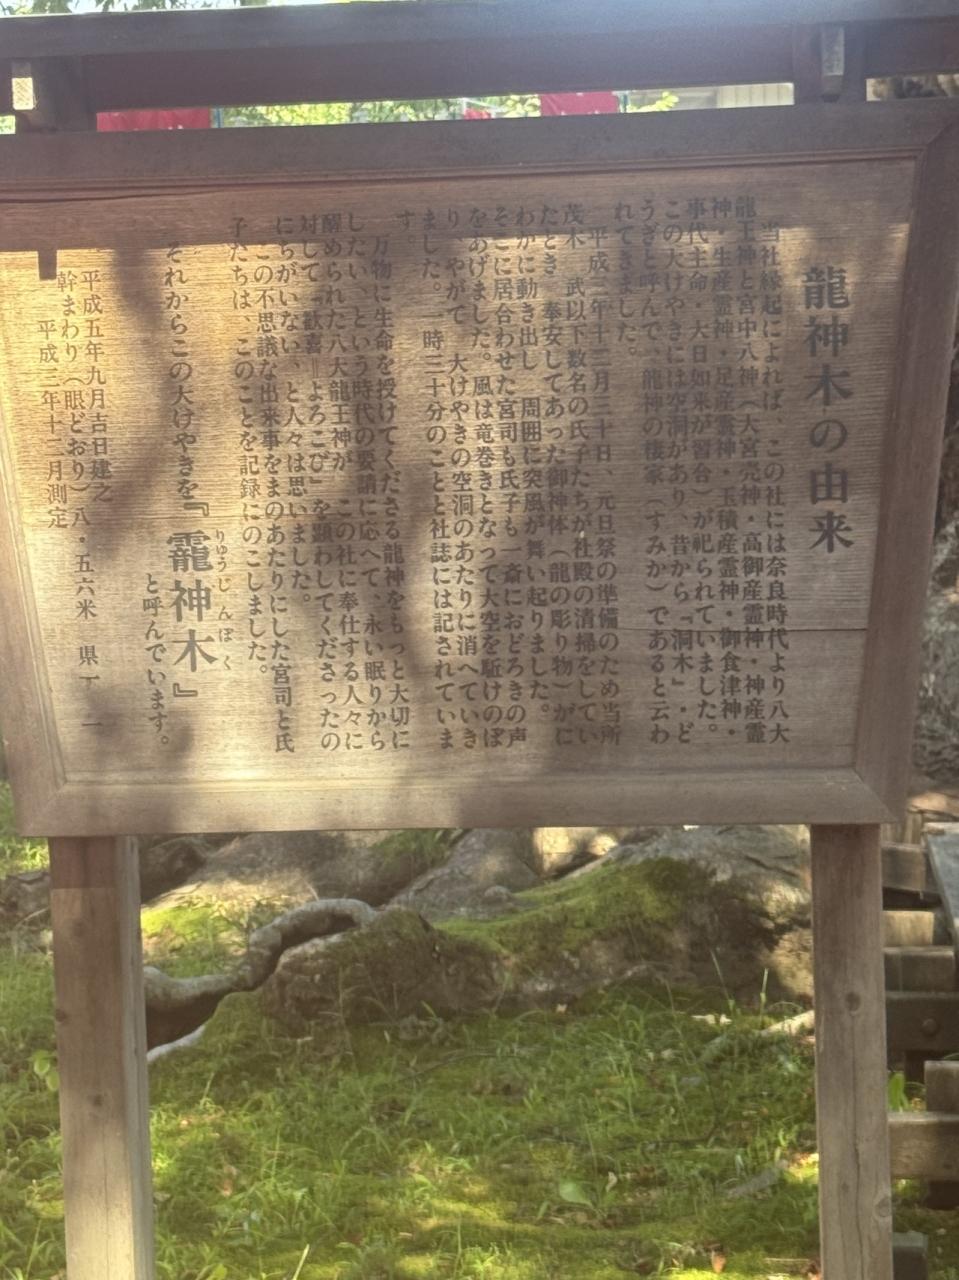 龍神木の由来
当社縁起によれば、この社には奈良時代より八大
龍王神と宮中八神（大宮売神・高御産霊神・神産霊
神・生産霊神・足産霊神・玉積産霊神・御食津神・
事代主命・大日如来が習台）が祀られていました。
この大けやきには空洞があり、昔から『洞木』・ど
うぎと呼んで、龍神の棲家（すみか）であると云わ
れてきました。
平成二年十二月三十日、元旦祭の準備のため当所
茂木 武以下数名の氏子たちが、社殿の清掃をしてい
たとき、奉安してあった御神体（龍の彫り物）がに
わかに動き出し、周囲に突風が舞い起りました。
そこに居合わせた宮司も氏子も一斎におどろきの声
をあげました。風は竜巻きとなって大空を駈けのぼ
り、やがて、大けやきの空洞のあたりに消へていき
ました。一時三十分のことと社誌には記されていま
す。
万物に生命を授けてくださる龍神をもっと大切に
したい、という時代の要請に応へて、永い眠りから
醒められた八大龍王神が、この社に奉仕する人々に
対して『歓喜＝よろこび』を顕わしてくださったの
にちがいない、と人々は思いました。
この不思議な出来事をまのあたりにした宮司と氏
子たちは、このことを記録にのこしました。
それからこの大けやきを『靇神木』
りゅうじんぼく
と呼んでいます。
平成五年九月吉日建之
幹まわり（眼どおり）八・五六米 県下一
平成三年十二月測定